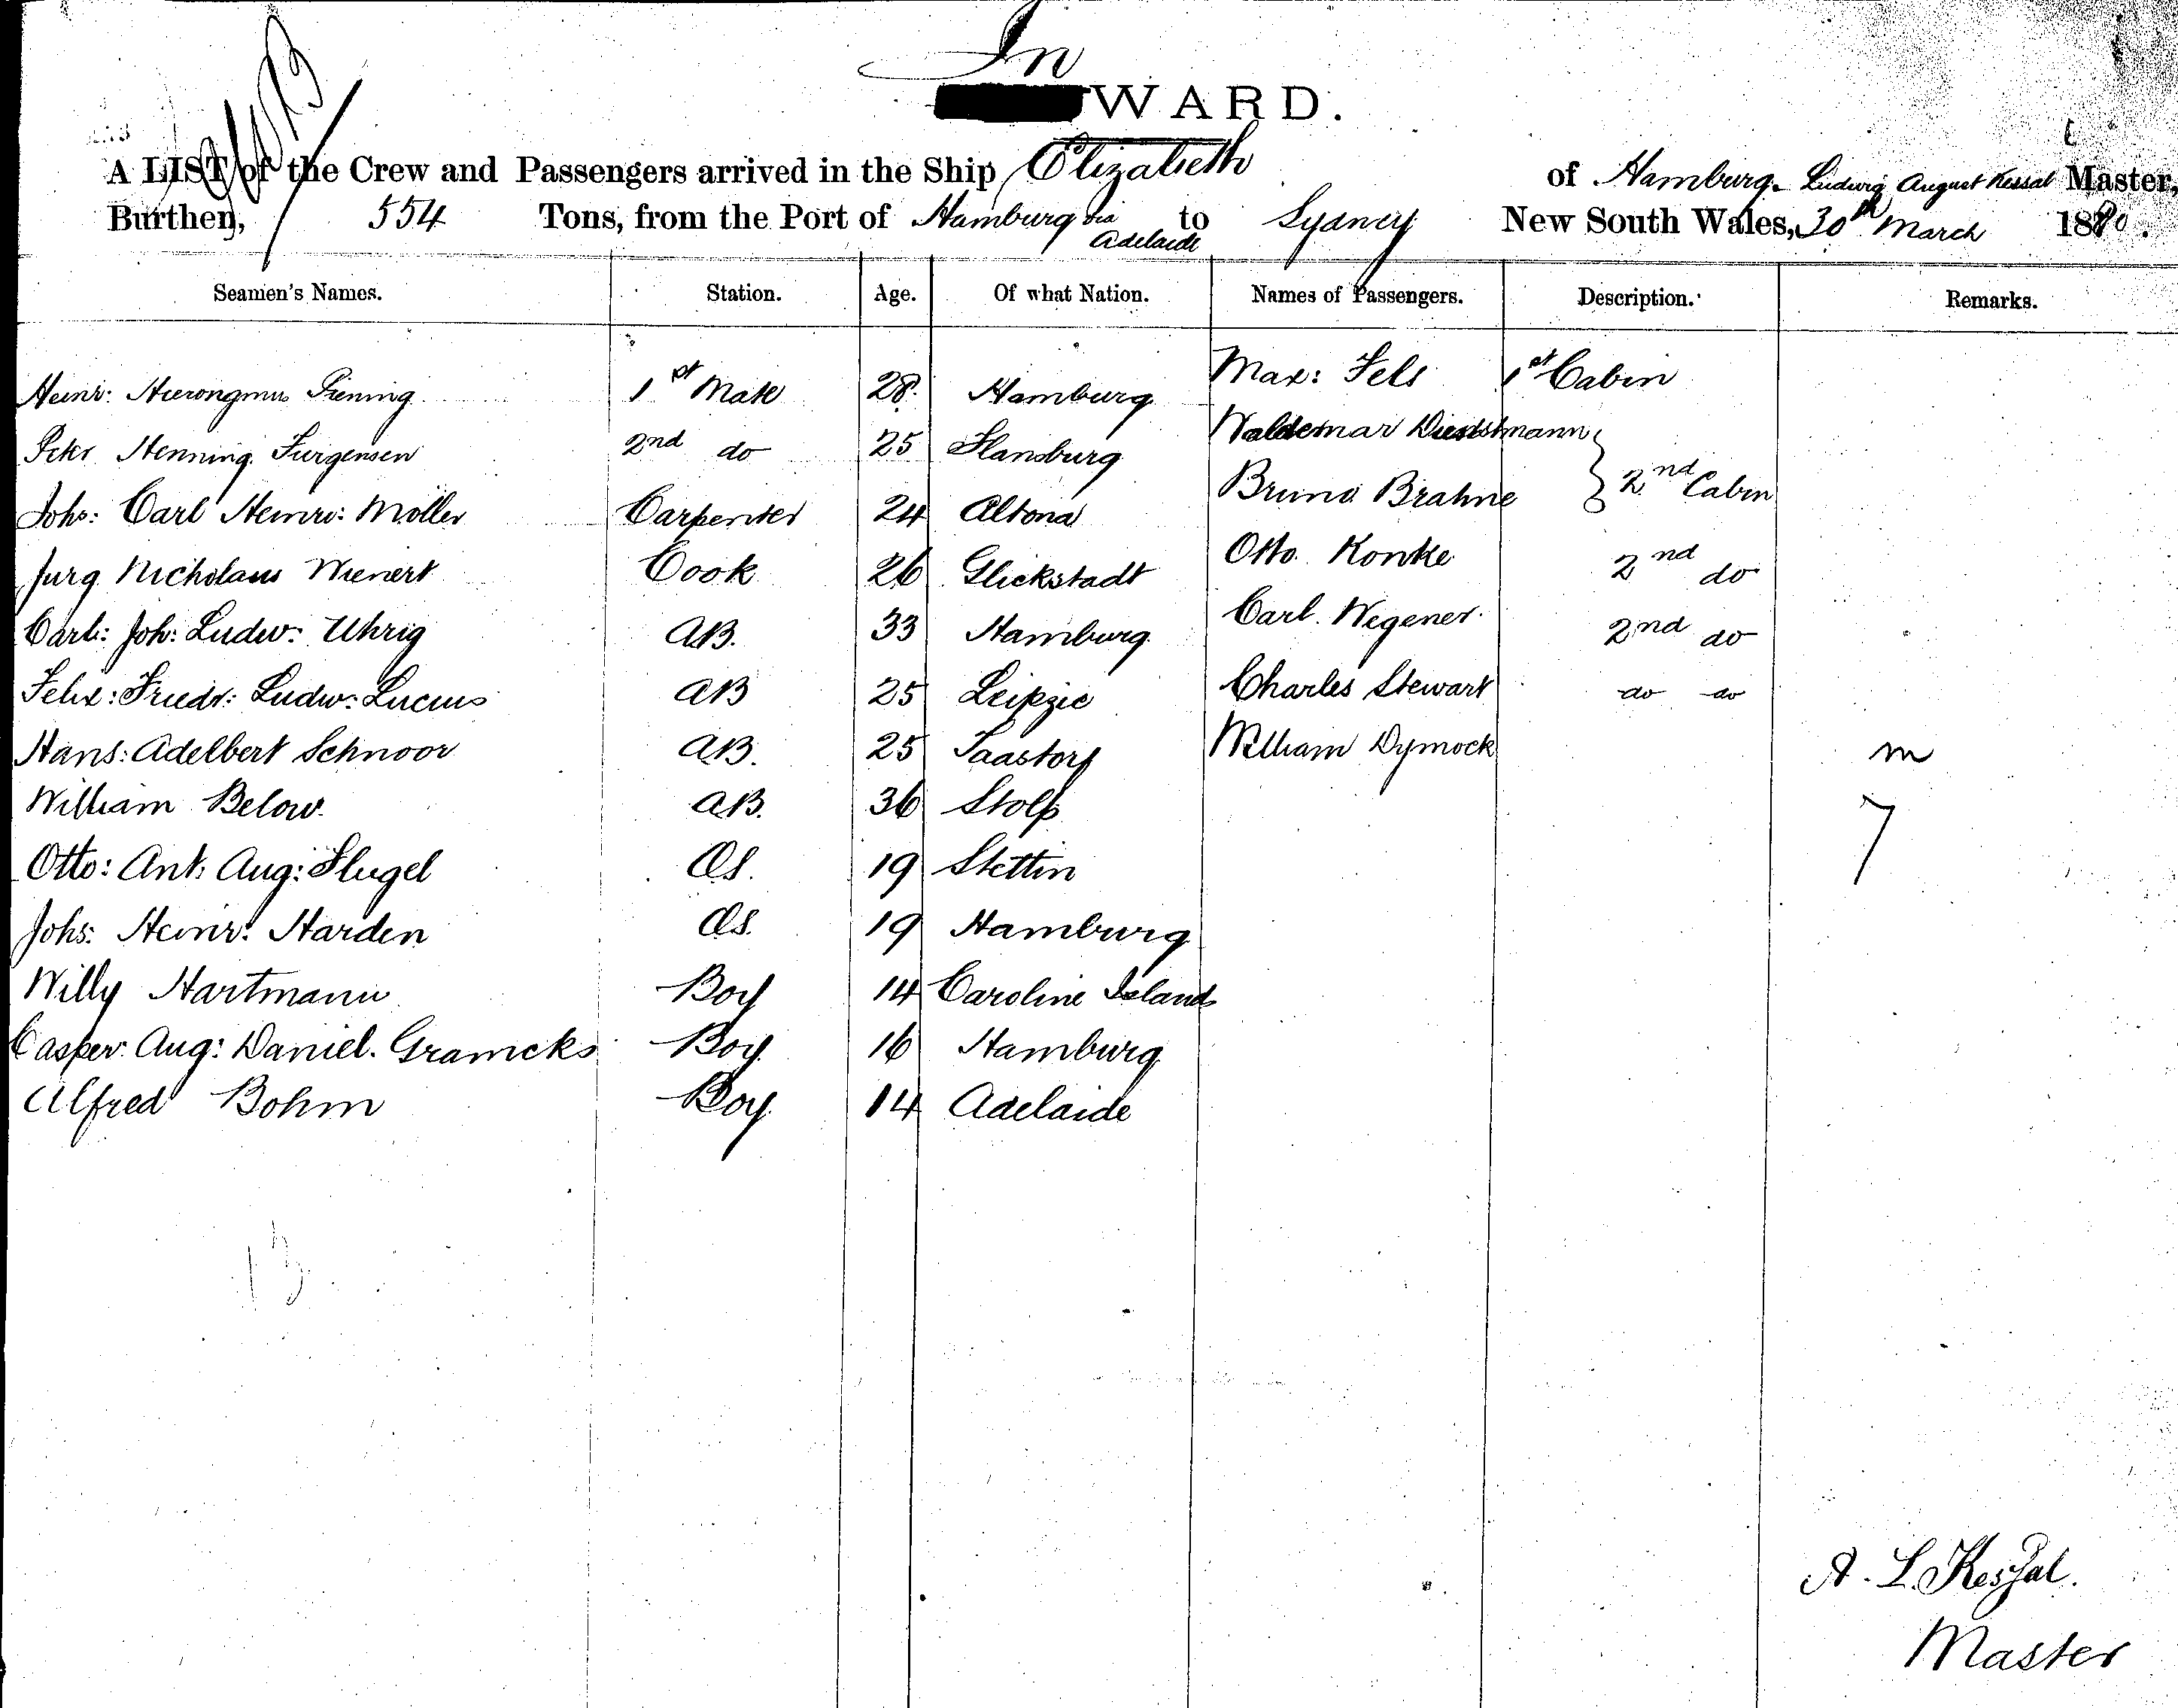 In
WARD.
A LIST of the Crew and Passengers arrived in the Ship Elizabeth of Hamburg. Ludwig August Kessal Master,
Burthen, 554 Tons, from the Port of Hamburg via Adelaide to Sydney New South Wales, 30th March 1880.
Seamen's Names. Station. Age. Of what Nation. Names of Passengers. Description. Remarks.
Heinr: Hieronymus Piening 1st Mate 28 Hamburg Max: Fels 1st Cabin
Peter Henning Jurgensen 2nd do 25 Flensburg Waldemar
Johs: Carl Heinr: Moller Carpenter 24 Altona Bruno Brahne 2nd Cabin
Jurg Nicholaus Wienert Cook 26 Glickstadt Otto Konke 2nd do
Carl: Joh: Ludw: Uhrig AB. 33 Hamburg Carl. Wegener 2nd do
Felix: Friedr: Ludw: Lucius AB 25 Leipzic Charles Stewart do do
Hans: Adelbert Schnoor AB. 25 Taastorf William Dymock m
William Below. AB. 36 Stolp 7
Otto: Ant: Aug: Flugel OS. 19 Stettin
Johs: Heinr: Harden OS. 19 Hamburg
Willy Hartmann Boy 14 Caroline Island
Casper: Aug: Daniel. Gramcks Boy 16 Hamburg
Alfred Bohm Boy 14 Adelaide
13
A. L. Kessal.
Master